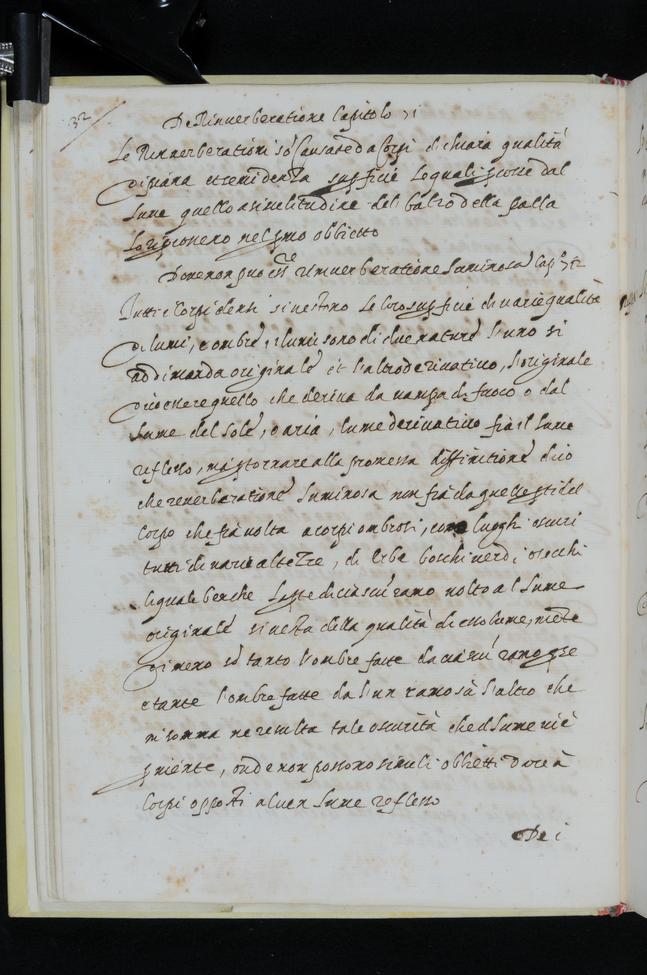 32
De Rinverberatione Capitolo 71
Le Rinverberationi sō Causate da Corpi di chiara qualità
di piana et semidenza superficie le quali percosse dal
lume quello a similitudine del balzo della palla
lo ripionero nel primo obbietto
Dove non può eser rinverberatione luminosa Capº 72
Tutti e Corpi densi si vestono le loro superficie di varie qualità
di lumi, e ombre, i lumi sono di due nature l'uno si
addimanda originale et l'altro derivativo, l'originale
dico essere quello che deriva da vampa di fuoco o dal
lume del sole, o aria, lume derivativo fia il lume
reflesso, ma p tornare alla promessa diffinitione dico
che reverberatione luminosa non fia da quelle pti del
Corpo che fia volta a corpi ombrosi, come luoghi oscuri
tutti di varie altezze, di Erbe boschi verdi, o secchi
li quale benche la pte di ciascū ramo volto al lume
originale si vesta della qualità di esso lume, niēte
di meno sō tante l'ombre fatte da ciascū ramo p se
e tante l'ombre fatte da l'un ramo sù l'altro che
in somma ne resulta tale oscurità che il lume vi è
p niente, onde non possono simili obbietti dare à
Corpi opposti alcun lume reflesso
De i